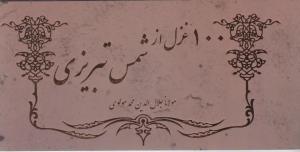 ۱۰۰ غزل از
شمس تبریزی
مولانا جلال الدین محمد مولوی